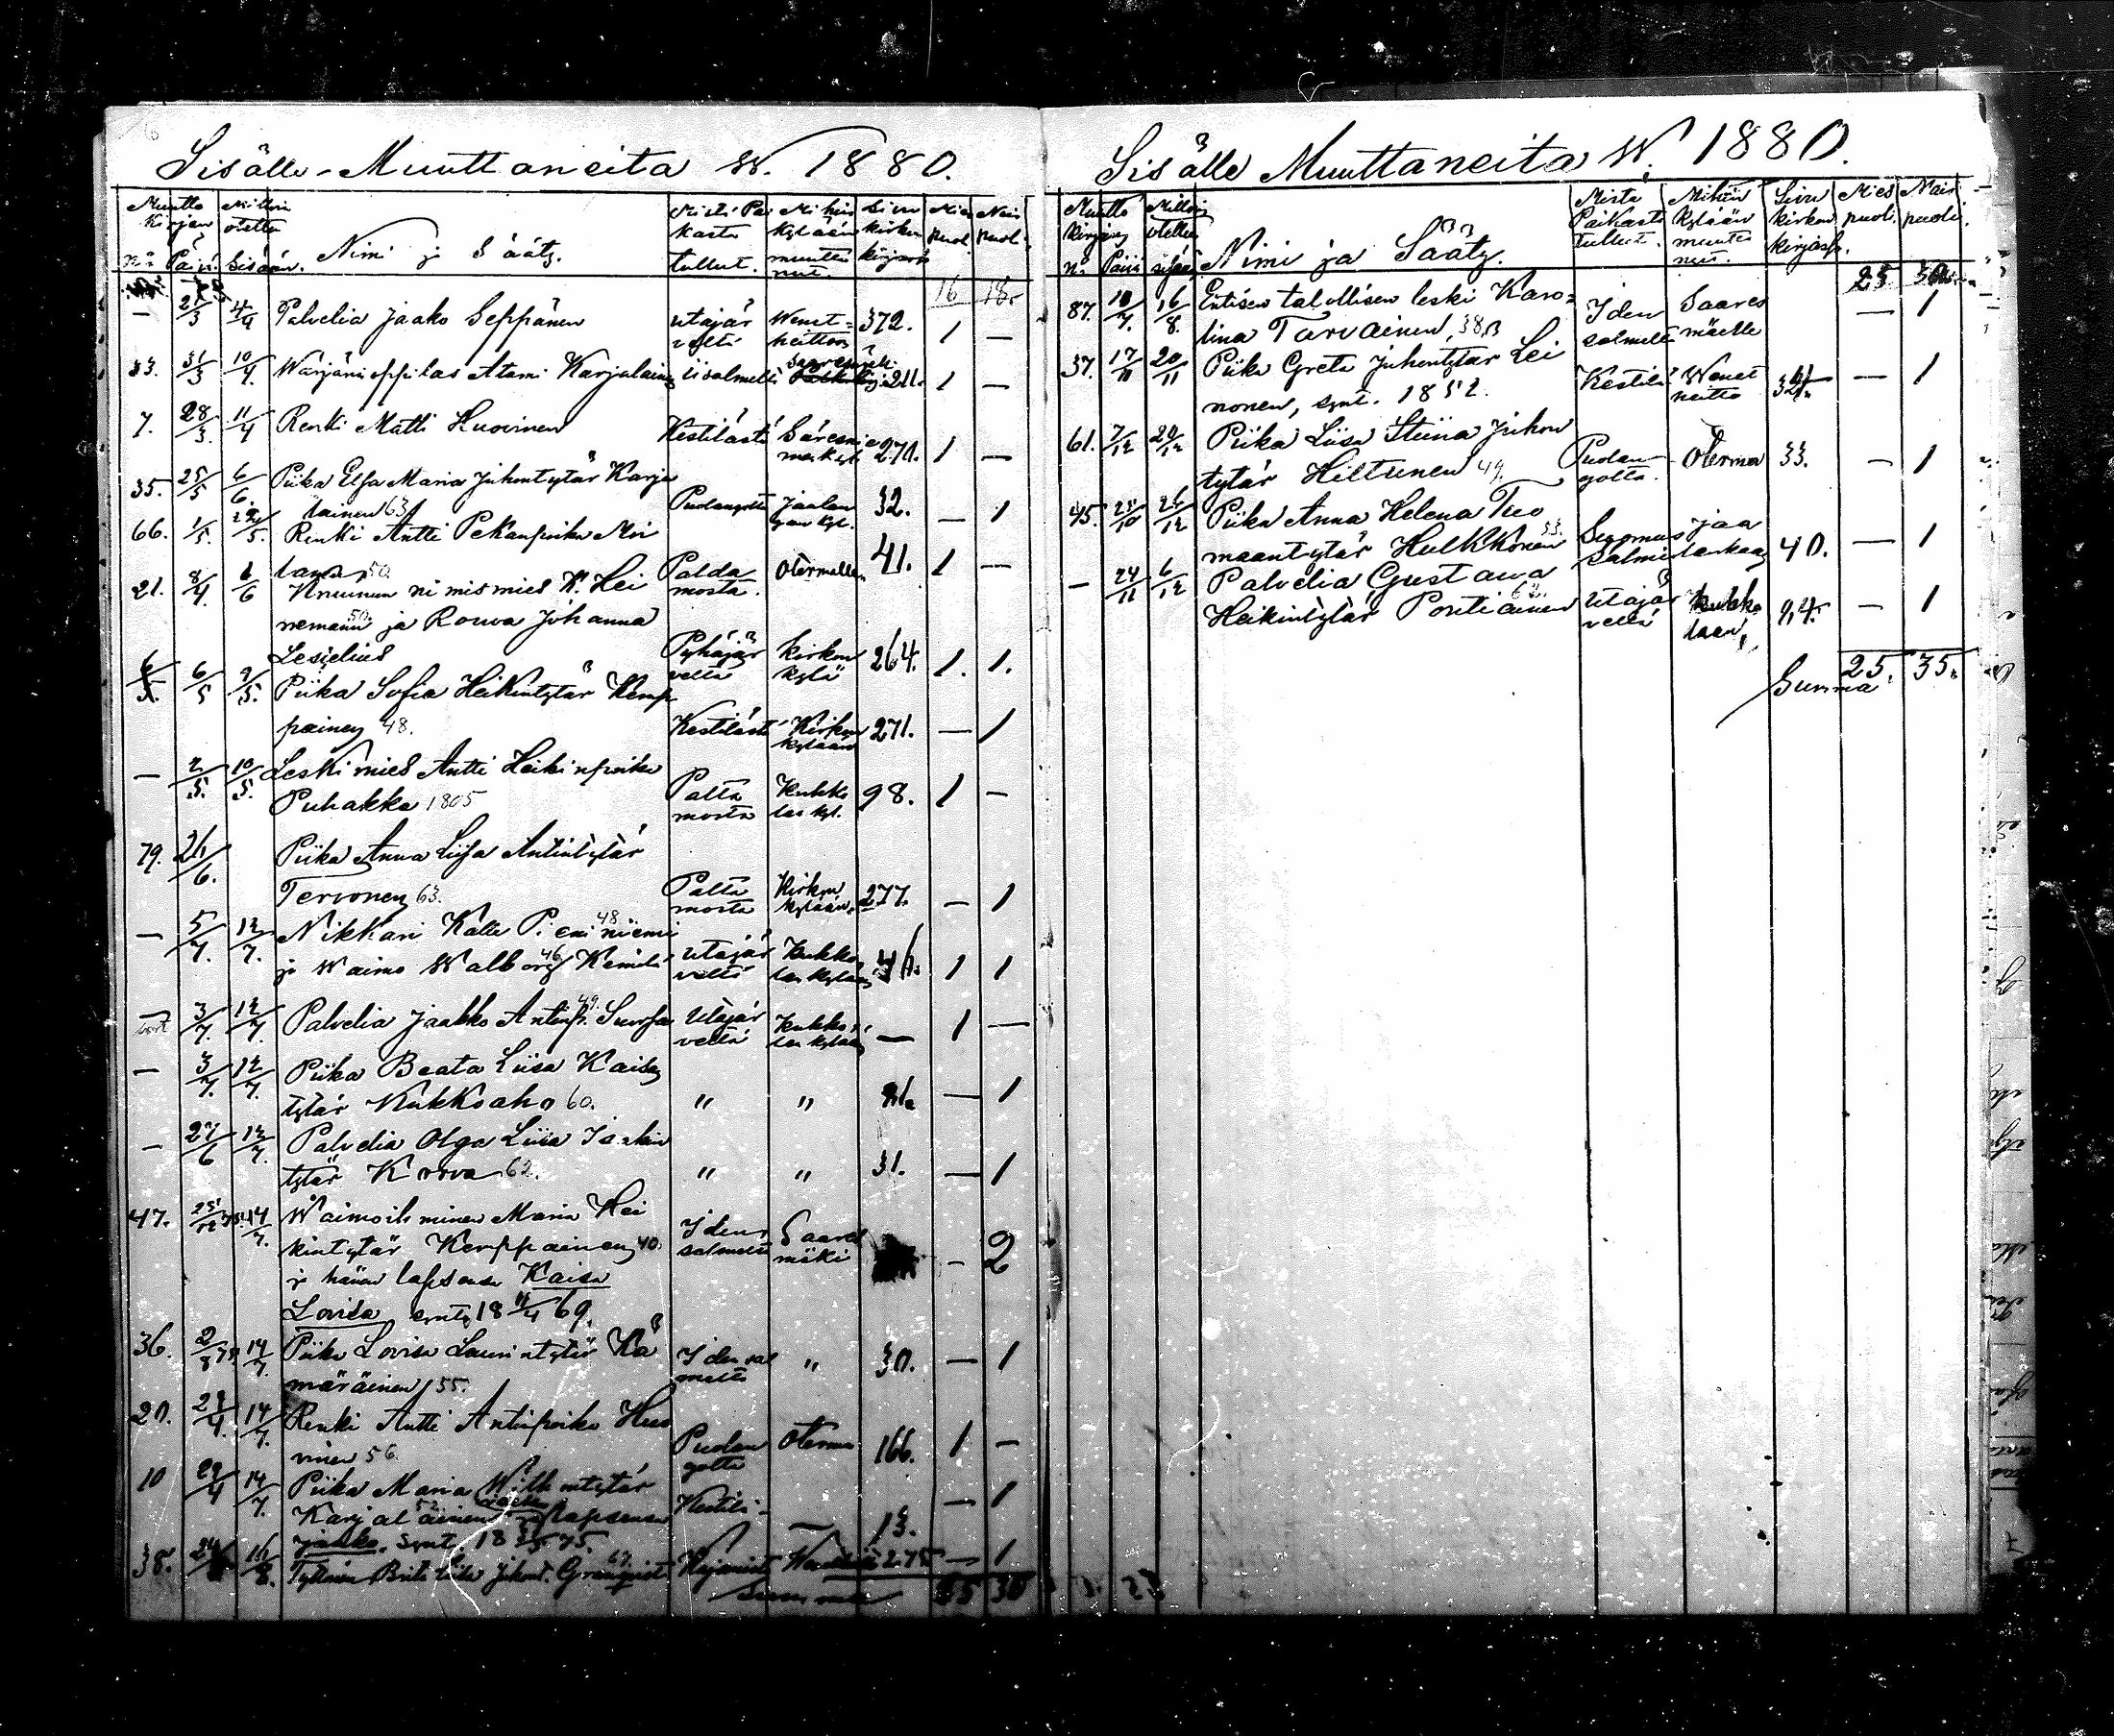 Sisälle-Muuttaneita W. 1880.
Muutto Kirjan
No Päiv.
Milloin otettu sisään.
Nimi ja Sääty.
Mistä Paikasta tullut.
Mihin kylään muuttanut.
Sivu kirkon kirjassa
Mies puol.
Nais puol.
16 18.
— 21/3 4/4 Palvelia Jaako Seppänen Utajärveltä Wenetheitton 372. 1 —
33. 31/3 10/4. Wärjärioppilas Atami Karjalainen Iisalmelta Saaresmäki 211. 1 —
7. 28/3. 11/4 Renki Matti Huovinen Kestilästä Säresmäeskyl. 270. 1 —
35. 25/5 6/6. Piika Elsa Maria Juhontytär Karja
lainen 63 Pudangolta Jaalangan kyl. 32. — 1
66. 1/5. 22/5. Renki Antti Pekanpoika Moi
lanen 50. Paldamosta. Otermalle 41. 1 —
21. 8/4. 6/6 Kruunun nimismies K. Hei
nemann 50. ja Rouva Johanna
Lesielius Pyhäjärveltä Kirkonkylä 264. 1. 1.
6/5 2/5. Piika Sofia Heikintytär Kemp
painen 48. Kestilästä Kirkonkylään 271. — 1
— 2/5. 10/5. Leskimies Antti Heikinpoika
Puhakka 1805 Paltamosta Kukkolas kyl. 98. 1 —
79. 26/6. Piika Anna Liisa Antintytär
Tervonen 63. Paltamosta Kirkonkylään. 277. — 1
— 5/7. 12/7. Nikkari Kalle Pieniniemi 48
ja Waimo Walborg 46 Kemilä Utajärveltä Kukkolas kylään 1 1
— 3/7. 12/7. Palvelia Jaakko Antinp. 49. Suorsa Utajärveltä Kukkolas kylään — 1 —
— 3/7. 12/7. Piika Beata Liisa Kaisa
tytär Kukkoaho 60. " " — 1
— 27/6 12/7. Palvelia Olga Liisa
tytär Korva 62. " " 31. — 1
47. 25/12 14/7. Waimoihminen Maria Hei
kintytär Kemppainen 40. Idensalmelta Saaresmäki — 2
ja hänen lapsensa Kaisa
Lovisa synt. 18 11/4 69.
36. 2/8 14/7. Piika Lovisa Laurintytär Kä
märäinen 55. Idensalmelta " 30. — 1
20. 29/4. 14/7. Renki Antti Antinpoika Huo
vinen 56. Pudangolta Oterma 166. 1 —
10 29/4 14/7. Piika Maria Wilhmtytär
Karjalainen 52. lapsensa Kestilä — 13. — 1
Jaakko. synt. 18 75.
38. 16/8. Brita Liisa Juhont. Granqvist Kajanista 275 — 1
Summa 25 30
Sisälle Muuttaneita W. 1880.
Muutto kirjan
No Päiv
Milloin otettu sisään
Nimi ja Sääty.
Mistä Paikasta tullut.
Mihin kylään muuttanut.
Sivu kirkon kirjassa.
Mies puoli.
Nais puoli.
25 30
87. 10/7. 16/8. Entisen talollisen leski Karo=
lina Tarvainen, 38. Idensalmelta Saaresmäelle — 1
37. 17/11 20/11 Piika Greta Juhontytär Lei
nonen, synt. 1852. Kestilä Wenetheitto — 1
61. 7/12 20/12 Piika Liisa Stiina Juhon
tytär Hiltunen 49. Pudangolta. Oterma 33. — 1
45. 25/10 26/12 Piika Anna Helena Tuo
maantytär Hulkkonen 53. Suomussalmi Jaalankaan 40. — 1
— 24/11 6/12 Palvelia Gustava
Heikintytär Pontiainen 62. Utajärveltä Kukkolaan, 94. — 1
Summa 25. 35.